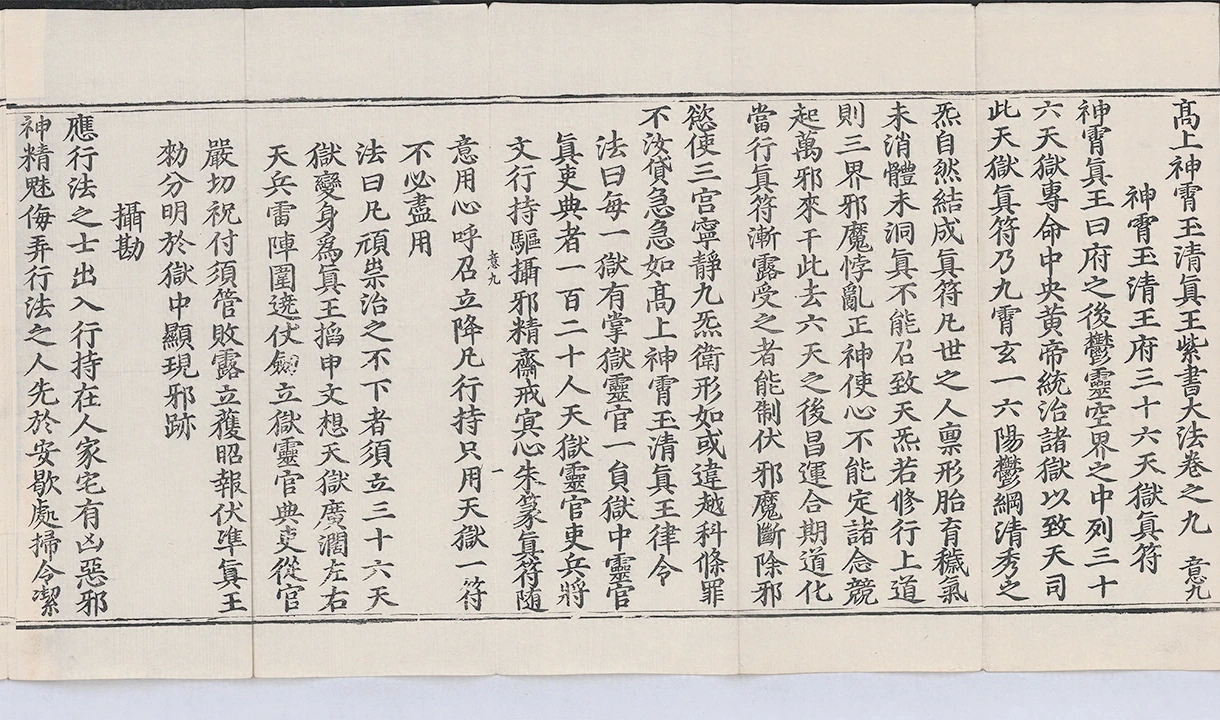 髙上神霄玉清眞王紫書大法卷之九 意九
神霄玉清王府三十六天獄眞符
神霄眞王曰府之後鬱靈空界之中列三十
六天獄專命中央黄帝統治諸獄以致天司
此天獄眞符乃九霄玄一六陽鬱綱清秀之
炁自然結成眞符凡世之人禀形胎育穢氣
未消體未洞眞不能召致天炁若修行上道
則三界邪魔悖亂正神使心不能定諸念競
起萬邪來干此去六天之後昌運合期道化
當行眞符漸露受之者能制伏邪魔斷除邪
慾使三宫寧靜九炁衛形如或違越科條罪
不汝貸急急如髙上神霄玉清眞王律令
法曰每一獄有掌獄靈官一員獄中靈官
眞吏典者一百二十人天獄靈官吏兵將
文行持驅攝邪精齋戒冥心朱篆眞符随
意九
一
意用心呼召立降凡行持只用天獄一符
不必盡用
法曰凡頑祟治之不下者須立三十六天
獄變身爲眞王搯申文想天獄廣濶左右
天兵雷陣圍遶仗劒立獄靈官典吏從官
嚴切祝付須管敗露立獲昭報伏準眞王
勑分明於獄中顯現邪跡
攝勘
應行法之士出入行持在人家宅有凶惡邪
神精魅侮弄行法之人先於安歇處掃令潔